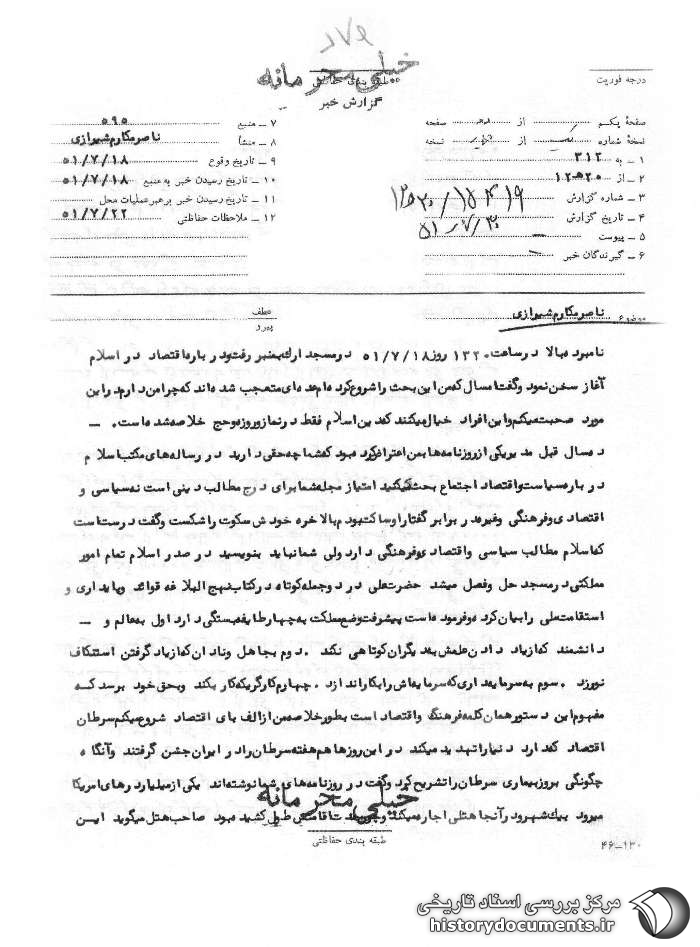 خیلی محرمانه
طبقه بندی حفاظتی
گزارش خبر
درجه فوریت
صفحهٔ یکم از صفحه
نسخهٔ شماره یک از نسخه
۱ ـ به ۳۱۲
۲ ـ از ۱۲ ه‍ ۲۰
۳ ـ شماره گزارش
۴ ـ تاریخ گزارش ۵۱/۷/۳۰
۵ ـ پیوست —
۶ ـ گیرندگان خبر —
۷ ـ منبع ۵۹۵
۸ ـ منشأ ناصر مکارم شیرازی
۹ ـ تاریخ وقوع ۵۱/۷/۱۸
۱۰ ـ تاریخ رسیدن خبر به منبع ۵۱/۷/۱۸
۱۱ ـ تاریخ رسیدن خبر برهبر عملیات محل
۱۲ ـ ملاحظات حفاظتی ۵۱/۷/۲۲
موضوع ناصر مکارم شیرازی
عطف
پیرو
نامبرده بالا در ساعت ۱۳۲۰ روز ۵۱/۷/۱۸ در مسجد ارك بمنبر رفت و درباره اقتصاد در اسلام
آغاز سخن نمود و گفت امسال که من این بحث را شروع کرده‌ام عده‌ای متعجب شده‌اند که چرا من دارم در این
مورد صحبت میکنم و این افراد خیال میکنند که دین اسلام فقط در نماز و روزه و حج خلاصه شده است. ـ
ده سال قبل مدیر یکی از روزنامه‌ها بمن اعتراض کرده بود که شما چه حقی دارید در رساله‌های مکتب اسلام
درباره سیاست و اقتصاد اجتماع بحث کنید امتیاز مجله شما برای درج مطالب دینی است نه سیاسی و
اقتصادی و فرهنگی و غیره در برابر گفتار او ساکت بودم بالاخره خودش سکوت را شکست و گفت درست است
که اسلام مطالب سیاسی و اقتصادی و فرهنگی دارد ولی شما نباید بنویسید در صدر اسلام تمام امور
مملکتی در مسجد حل و فصل میشد حضرت علی در دو جمله کوتاه در کتاب نهج البلاغه قواعد و پایداری و
استقامت ملی را بیان کرده و فرموده است پیشرفت وضع مملکت به چهار طایفه بستگی دارد اول به عالم و ـ
دانشمند که از یاد دادن علمش به دیگران کوتاهی نکند. دوم بجاهل و نادان که از یاد گرفتن استنکاف
نورزد. سوم به سرمایه‌داری که سرمایه‌اش را بکار اندازد. چهارم کارگریکه کار بکند و بحق خود برسد که
مفهوم این دستور همان کلمه فرهنگ و اقتصاد است بطور خلاصه من از الف بای اقتصاد شروع میکنم سرطان
اقتصاد که دارد دنیا را تهدید میکند در این روزها هم هفته سرطان را در ایران جشن گرفتند و آنگاه
چگونگی بروز بیماری سرطان را تشریح کرد و گفت در روزنامه‌های شما نوشته‌اند یکی از میلیاردرهای امریکا
میرود بیك شهر و در آنجا هتلی اجاره میکند و چون مدت اقامتش طول کشیده بود صاحب هتل میگوید این
خیلی محرمانه
طبقه بندی حفاظتی
۴۶-۱۲۰
مرکز بررسی اسناد تاریخی
historydocuments.ir